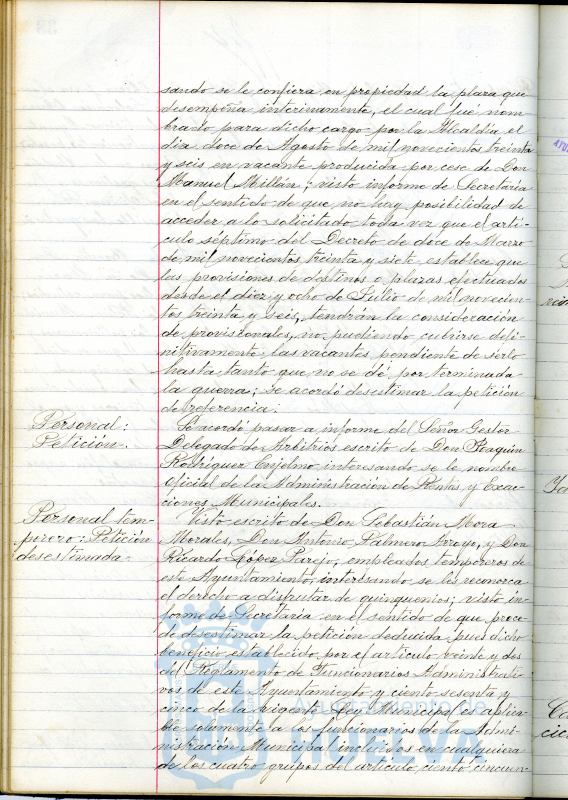 sando se le confiera en propiedad la plaza que
desempeña interinamente, el cual fué nom-
brado para dicho cargo por la Alcaldía el
día doce de Agosto de mil novecientos treinta
y seis en vacante producida por cese de Don
Manuel Millán; visto informe de Secretaría
en el sentido de que no hay posibilidad de
acceder a lo solicitado toda vez que el artí-
culo séptimo del Decreto de doce de Marzo
de mil novecientos treinta y siete establece que
las provisiones de destinos o plazas efectuados
desde el diez y ocho de Julio de mil novecien-
tos treinta y seis, tendrán la consideración
de provisionales, no pudiendo cubrirse defi-
nitivamente las vacantes pendiente de serlo
hasta tanto que no se dé por terminada
la guerra; se acordó desestimar la petición
de referencia.
Personal:
Petición.
Se acordó pasar a informe del Señor Gestor
Delegado de Arbitrios escrito de Don Joaquin
Rodríguez Enjelmo interesando se le nombre
oficial de la Administración de Rentas y Exac-
ciones Municipales.
Personal tem-
porero: Petición
desestimada.
Visto escrito de Don Sebastián Mora
Morales, Don Antonio Palmero Arroyo, y Don
Ricardo López Parejo, empleados temporeros de
este Ayuntamiento, interesando se les reconozca
el derecho a disfrutar de quinquenios; visto in-
forme de Secretaría en el sentido de que proce-
de desestimar la petición deducida, pues dicho
beneficio establecido por el artículo veinte y dos
del Reglamento de Funcionarios Administrati-
vos de este Ayuntamiento y ciento sesenta y
cinco de la vigente Ley Municipal es aplica-
ble solamente a los funcionarios de la Admi-
nistración Municipal incluidos en cualquiera
de los cuatro grupos del artículo ciento cincuen-
Ayuntamiento de
HUELVA